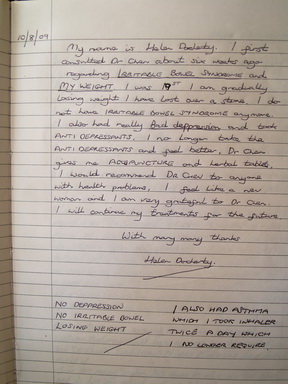 10/8/09
My name is Helen Docherty. I first
consulted Dr Chen about six weeks ago
regarding IRRITABLE BOWEL SYNDROME and
MY WEIGHT. I was 19ST I am gradually
losing weight I have lost over a stone. I do
not have IRRITABLE BOWEL SYNDROME anymore.
I also had really bad depression and took
ANTI DEPRESSANTS. I no longer take the
ANTI DEPRESSANTS and feel better. Dr Chen
gives me ACUPUNCTURE and herbal tablets.
I would recommend Dr Chen to anyone
with health problems. I feel like a new
woman and I am very grateful to Dr Chen.
I will continue my treatments for the future.
With many many thanks
Helen Docherty.
NO DEPPRESSION
NO IRRITABLE BOWEL
LOSING WEIGHT
I ALSO HAD ASTHMA
WHICH I TOOK INHALER
TWICE A DAY WHICH
I NO LONGER REQUIRE.